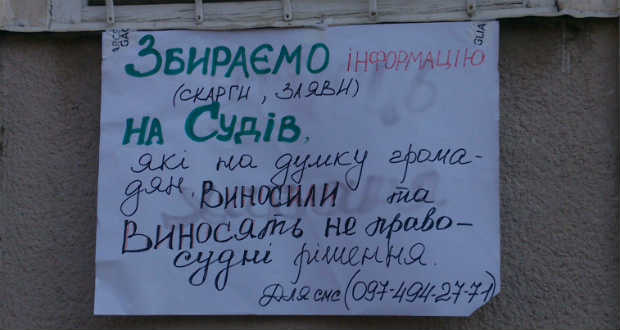 Збираємо інформацію
(скарги, заяви)
на Суддів,
які на думку грома-
дян. Виносили та
Виносять не право-
судні рішення.
Для смс (097-494-27-71)